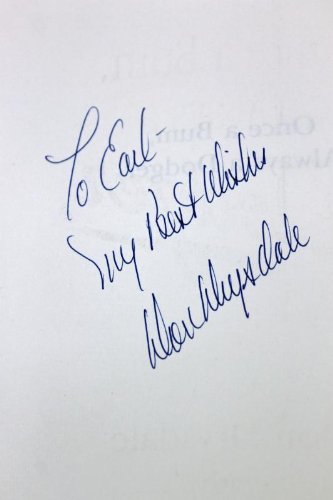 To Earl-
My Best Wishes
Don Drysdale
Once a Bum,
Always a Dodger